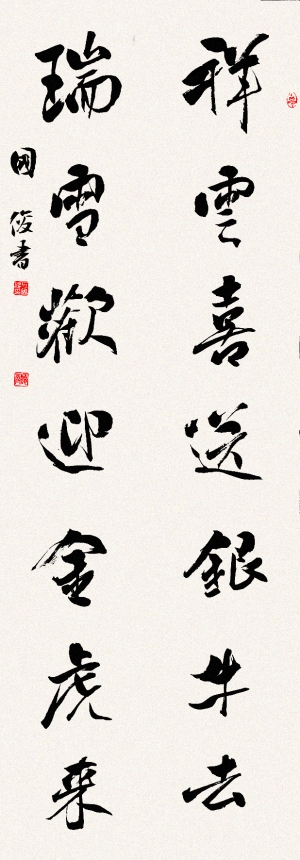 祥雲喜送銀牛去
瑞雪歡迎金虎来
國俊書